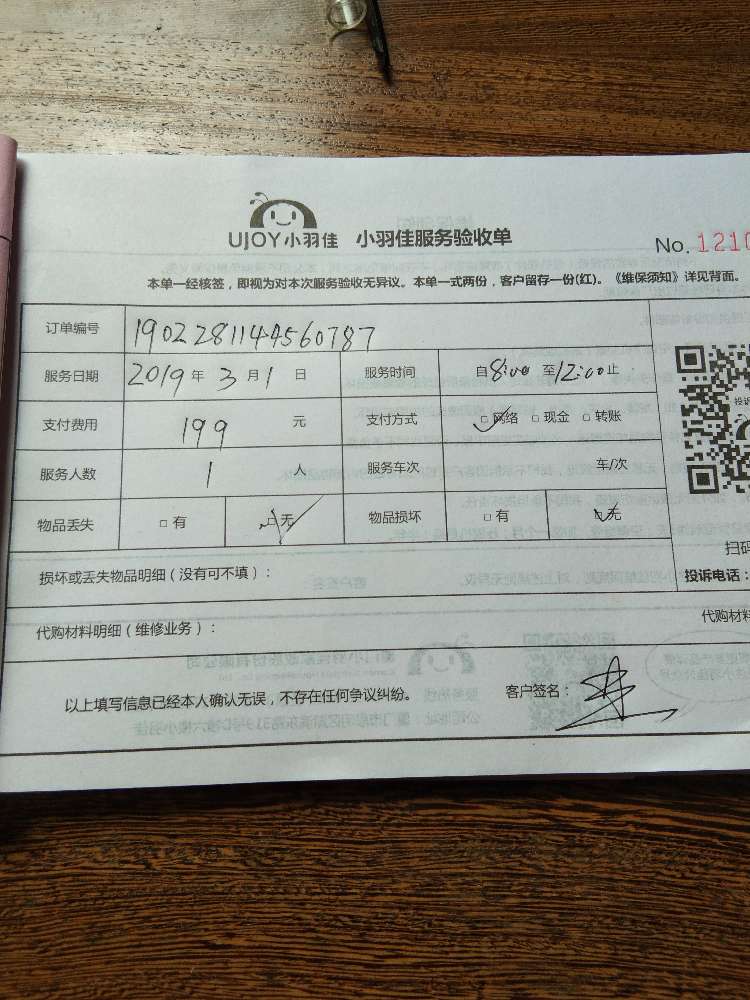 UJOY小羽佳 小羽佳服务验收单
No. 1210
本单一经核签，即视为对本次服务验收无异议。本单一式两份，客户留存一份(红)。《维保须知》详见背面。
订单编号 1902281144560787
服务日期 2019年3月1日 服务时间 自8:00至12:00止
支付费用 199元 支付方式 □网络 □现金 □转账
服务人数 1人 服务车次 车/次
物品丢失 □有 □无 物品损坏 □有 □无
投诉
扫码
损坏或丢失物品明细（没有可不填）：
投诉电话：
代购材料明细（维修业务）：
代购材料
以上填写信息已经本人确认无误，不存在任何争议纠纷。 客户签名：